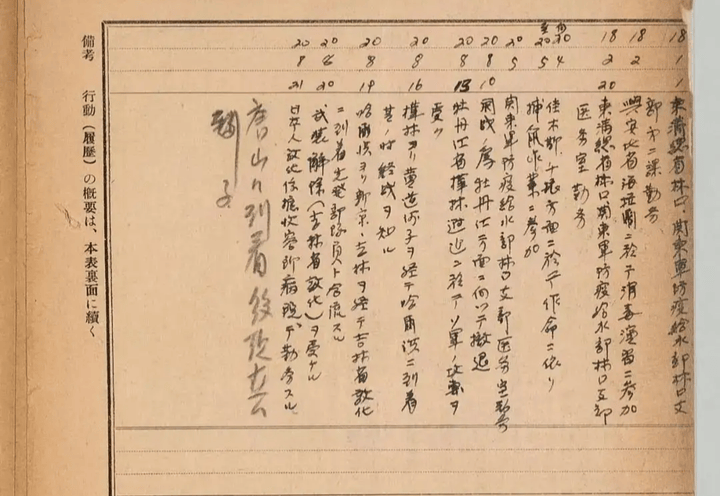 18 1 1 東満総省林口、関東軍防疫給水部林口支
部第二課勤務
18 2 興安北省海拉爾ニ於テ消毒演習ニ参加
18 2 20 東満総省林口関東軍防疫給水部林口支部
医務室勤務
20 4
20 5 佳木斯、方面ニ於テ作命ニ依リ
捕鼠作業ニ参加
20 5 関東軍防疫給水部林口支部医務室勤務
20 8 10 牡丹江方面ニ向ツテ撤退
20 8 13 牡丹江省樺林附近ニ於テソ軍ノ攻撃ヲ
受ク
20 8 16 樺林ヨリ黄道河子ヲ経テ哈爾浜ニ到着
其ノ時終戦ヲ知ル
20 8 19 哈爾浜ヨリ新京、吉林ヲ経テ吉林省敦化
ニ到着先発部隊員ト合流スル
20 8 20 武装解除(吉林省敦化)ヲ受ケル
20 8 21 日本人敦化収容所病院デ勤務スル
唐山に到着後
備考 行動(履歴)の概要は、本表裏面に続く